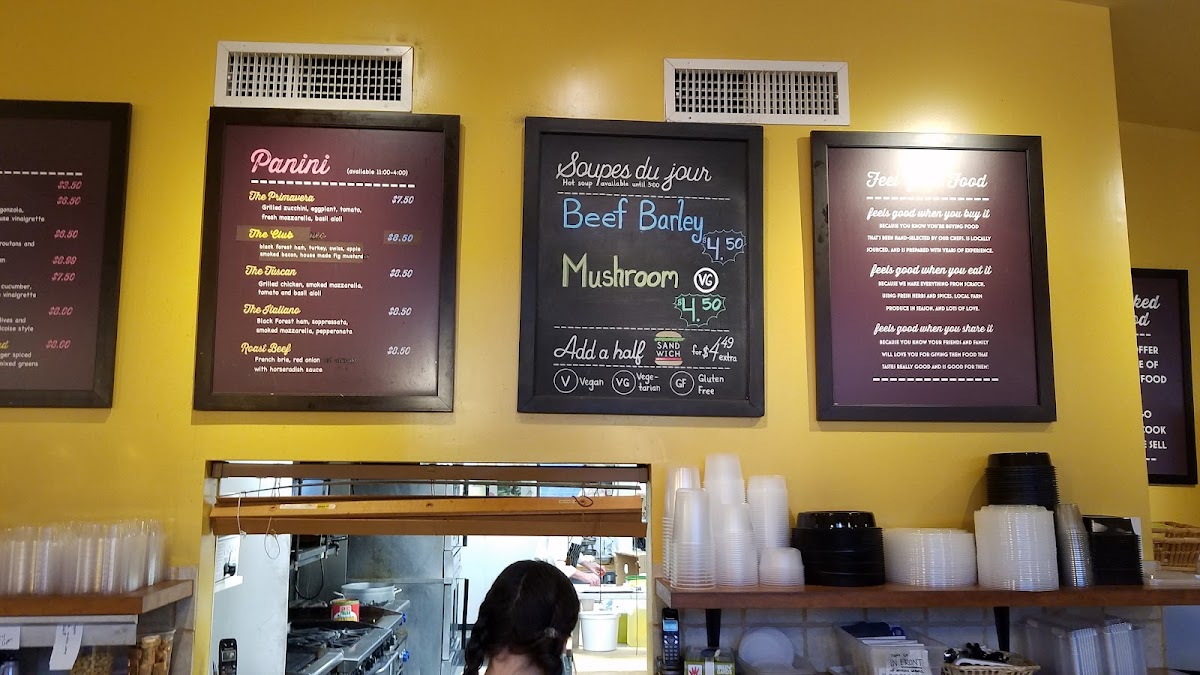 $3.50
$6.50
gonzola,
use vinaigrette
$6.50
routons and
$7.50
cucumber,
vinaigrette
$8.00
lives and
icoise style
$8.00
ger spiced
mixed greens
Panini (available 11:00-4:00)
The Primavera $7.50
Grilled zucchini, eggplant, tomato,
fresh mozzarella, basil aioli
The Club $8.50
black forest ham, turkey, swiss, apple
smoked bacon, house made fig mustard
The Tuscan $8.50
Grilled chicken, smoked mozzarella,
tomato and basil aioli
The Italiano $8.50
Black Forest ham, soppressata,
smoked mozzarella, pepperonata
Roast Beef $8.50
French brie, red onion
with horseradish sauce
Soupes du jour
Hot soup available until 3:00
Beef Barley
$4.50
Mushroom VG
$4.50
Add a half SANDWICH for $4.49 extra
V Vegan VG Vegetarian GF Gluten Free
Feel Food
feels good when you buy it
BECAUSE YOU KNOW YOU'RE BUYING FOOD
THAT'S BEEN HAND-SELECTED BY OUR CHEFS, IS LOCALLY
SOURCED, AND IS PREPARED WITH YEARS OF EXPERIENCE.
feels good when you eat it
BECAUSE WE MAKE EVERYTHING FROM SCRATCH,
USING FRESH HERBS AND SPICES, LOCAL FARM
PRODUCE IN SEASON, AND LOTS OF LOVE.
feels good when you share it
BECAUSE YOU KNOW YOUR FRIENDS AND FAMILY
WILL LOVE YOU FOR GIVING THEM FOOD THAT
TASTES REALLY GOOD AND IS GOOD FOR THEM!
ked
od
OFFER
E OF
FOOD
SO
COOK
E SELL
IN FRONT